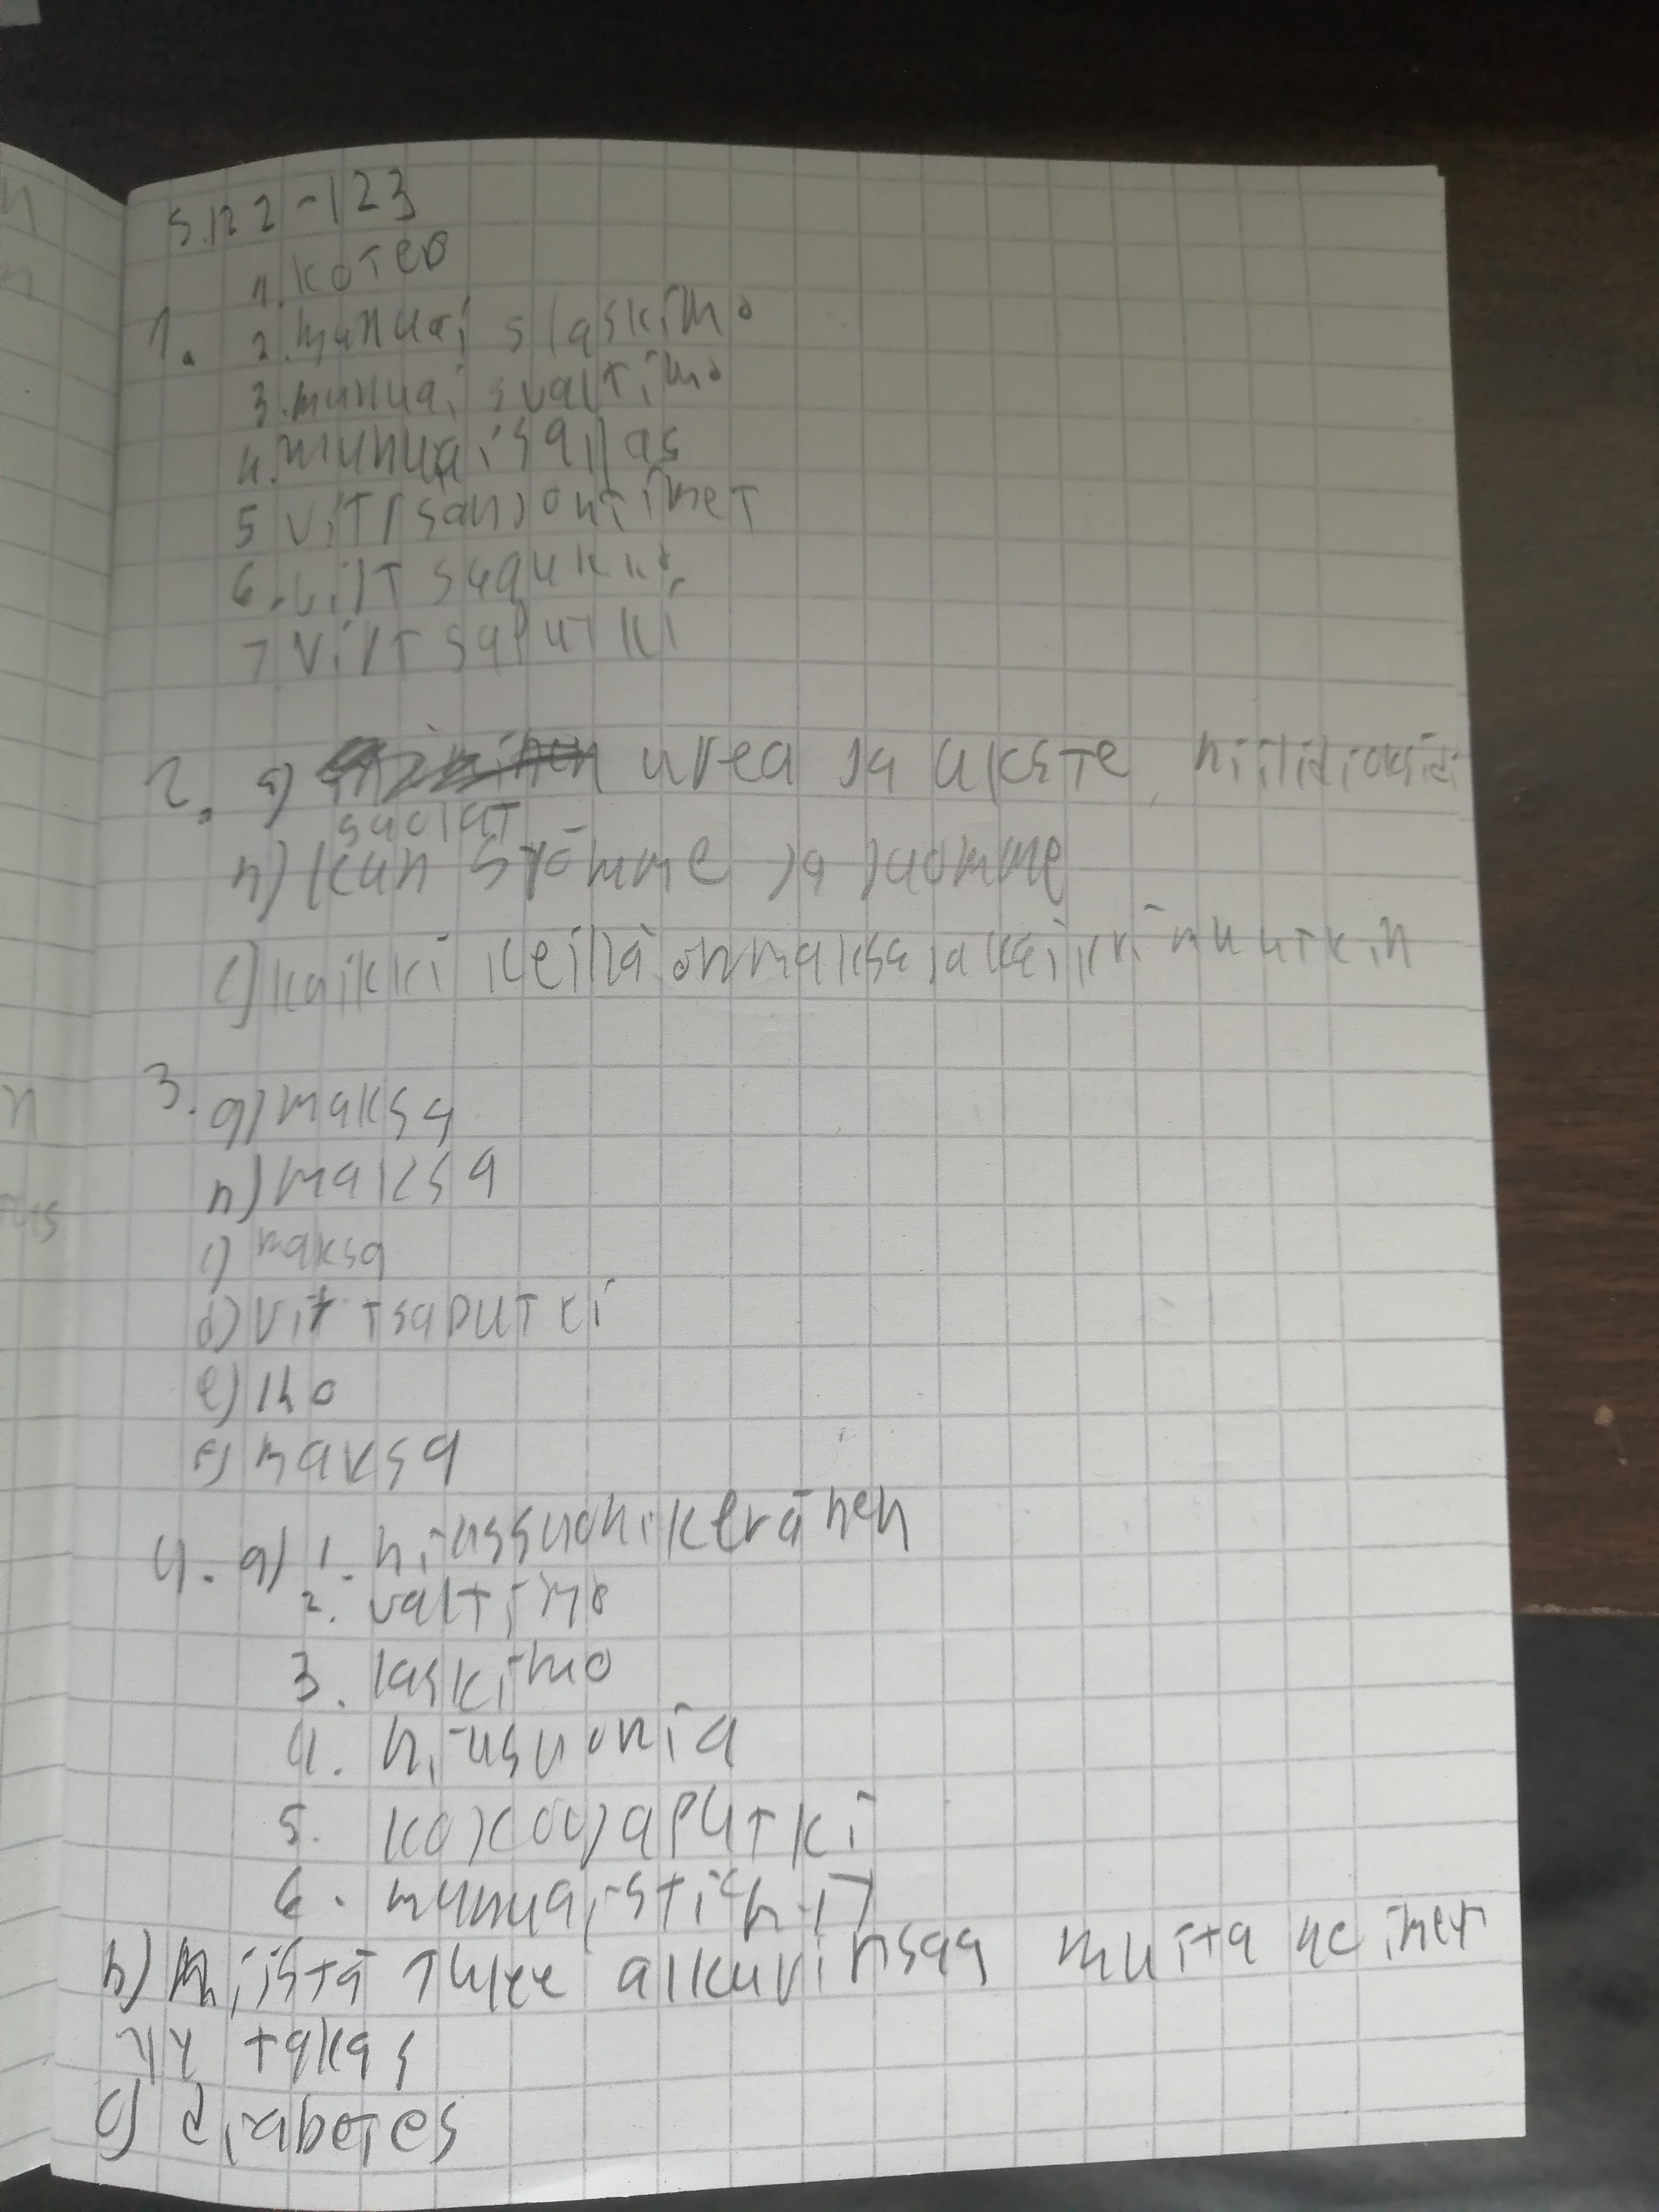 s.122-123
1. 1. kotelo
2. munuaislaskimo
3. munuaisvaltimo
4. munuaisallas
5 virtsanjohtimet
6. virtsarakko
7 virtsaputki
2. a) urea ja ukste, hiilidioksidi
suolat
b) kun syömme ja juomme
c) kaikki keillä on maksa ja kaikki muutkin
3. a) maksa
b) maksa
c) maksa
d) virtsaputki
e) iho
f) maksa
4. a) 1. hiussuonikeränen
2. valtimo
3. laskimo
4. hiusuonia
5. kokoojaputki
6.
b) Niistä tulee alkuvirtsaa muita
takas
c) diabetes